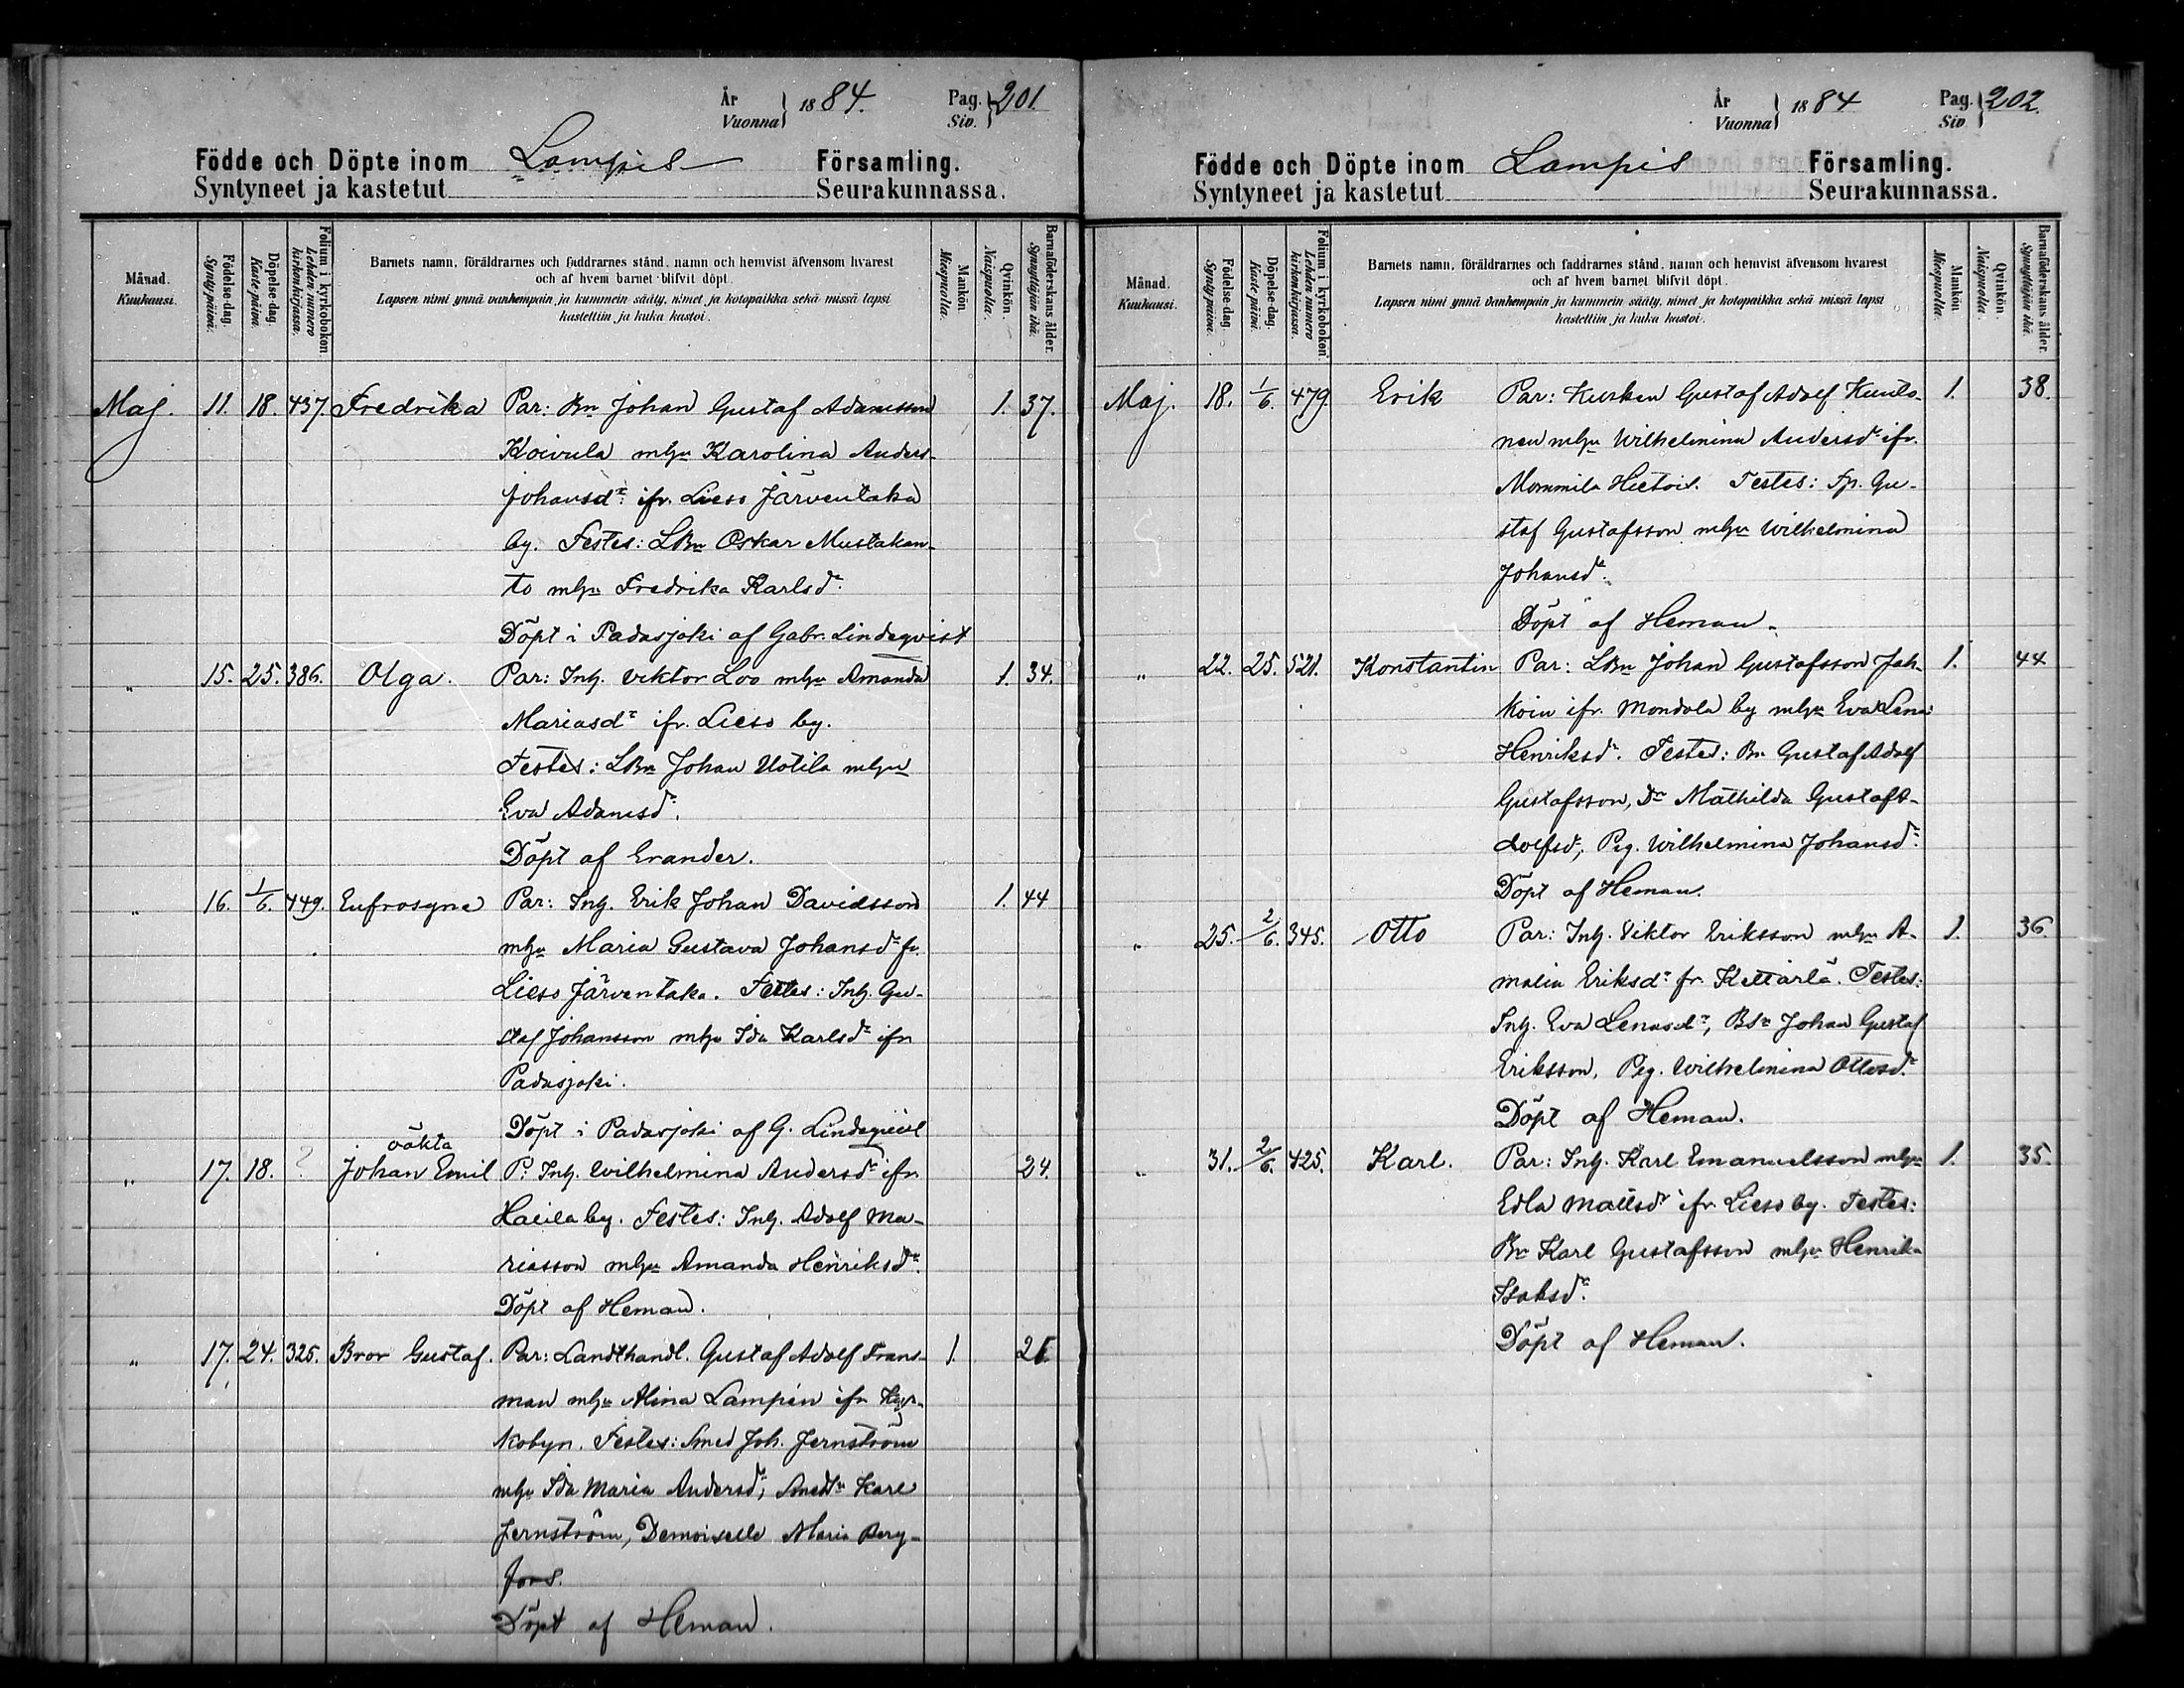 År
Vuonna } 1884. Pag. Siv. } 201
Födde och Döpte inom Lampis Församling.
Syntyneet ja kastetut Seurakunnassa.
Månad. Kuukausi.
Födelse-dag. Synty päivä.
Döpelse-dag. Kaste päivä.
Folium i kyrkoboken. Lehden numero kirkonkirjassa.
Barnets namn, föräldrarnes och faddrarnes stånd, namn och hemvist äfvensom hvarest
och af hvem barnet blifvit döpt.
Lapsen nimi ynnä vanhempain ja kummein sääty, nimet ja kotopaikka sekä missä lapsi
kastettiin ja kuka kastoi.
Mankön. Miespuolta.
Qvinkön. Naispuolta.
Barnaföderskans ålder. Synnyttäjän ikä.
Maj. 11. 18. 437. Fredrika Par: Bn Johan Gustaf Adamsson 1. 37.
Koivula mhu Karolina Anders-
Johansdr ifr. Lieso Järventaka
by. Testes: LBn Oskar Mustakan-
to mhu Fredrika Karlsdr
Döpt i Padasjoki af Gabr. Lindeqvist
" 15. 25. 386. Olga. Par: Inh. Viktor Loo mhu Amanda 1. 34.
Mariasdr ifr. Lieso by.
Testes: LBn Johan Uotila mhu
Eva Adamsdr.
Döpt af Evander.
" 16. 1/6. 449. Eufrosyne Par: Inh. Erik Johan Davidsson 1. 44
mhu Maria Gustava Johansdr fr.
Lieso Järventaka. Testes: Inh. Gu-
staf Johansson mhu Ida Karlsdr ifr
Padasjoki.
Döpt i Padasjoki af G. Lindeqvist
oäkta
" 17. 18. ? Johan Emil P. Inh. Wilhelmina Andersdr ifr. 24.
Haila by. Testes: Inh. Adolf Ma-
riasson mhu Amanda Henriksdr.
Döpt af Heman.
" 17. 24. 325. Bror Gustaf. Par: Landthandl. Gustaf Adolf Frans- 1.
man mhu Alina Lampén ifr Kyr-
kobyn. Testes: Smed Joh. Jernström
mhu Ida Maria Andersdr, Karl
Jernström, Demoiselle Maria Berg-
fors.
Döpt af Heman.
År
Vuonna } 1884 Pag. Siv } 202.
Födde och Döpte inom Lampis Församling.
Syntyneet ja kastetut Seurakunnassa.
Månad. Kuukausi.
Födelse-dag. Synty päivä.
Döpelse-dag. Kaste päivä.
Folium i kyrkoboken. Lehden numero kirkonkirjassa.
Barnets namn, föräldrarnes och faddrarnes stånd, namn och hemvist äfvensom hvarest
och af hvem barnet blifvit döpt.
Lapsen nimi ynnä vanhempain ja kummein sääty, nimet ja kotopaikka sekä missä lapsi
kastettiin ja kuka kastoi.
Mankön. Miespuolta.
Qvinkön. Naispuolta.
Barnaföderskans ålder. Synnyttäjän ikä.
Maj. 18. 1/6. 479. Erik Par: Kusken Gustaf Adolf Kuulo- 1. 38.
nen mhu Wilhelmina Andersdr ifr.
Mommila Hietois. Testes: Gu-
staf Gustafsson mhu Wilhelmina
Johansdr.
Döpt af Heman.
" 22. 25. 521. Konstantin Par: LBn Johan Gustafsson Jah- 1. 44
koin ifr. Mondola by mhu Eva Lena
Henriksdr. Testes: Bn Gustaf Adolf
Gustafsson, Dn Mathilda Gustafa-
dolfsdr, Pig. Wilhelmina Johansdr.
Döpt af Heman.
" 25. 2/6. 345. Otto Par: Inh. Viktor Eriksson mhu A- 1. 36.
malia Eriksdr fr. Kettarla. Testes:
Inh. Eva Lenasdr, Johan Gustaf
Eriksson, Pig. Wilhelmina Ottosdr.
Döpt af Heman.
" 31. 2/6. 425. Karl. Par: Inh. Karl Emanuelsson mhu 1. 35.
Edla Mattsdr ifr Lieso by. Testes:
Bn Karl Gustafsson mhu Henrika
Isaksdr.
Döpt af Heman.